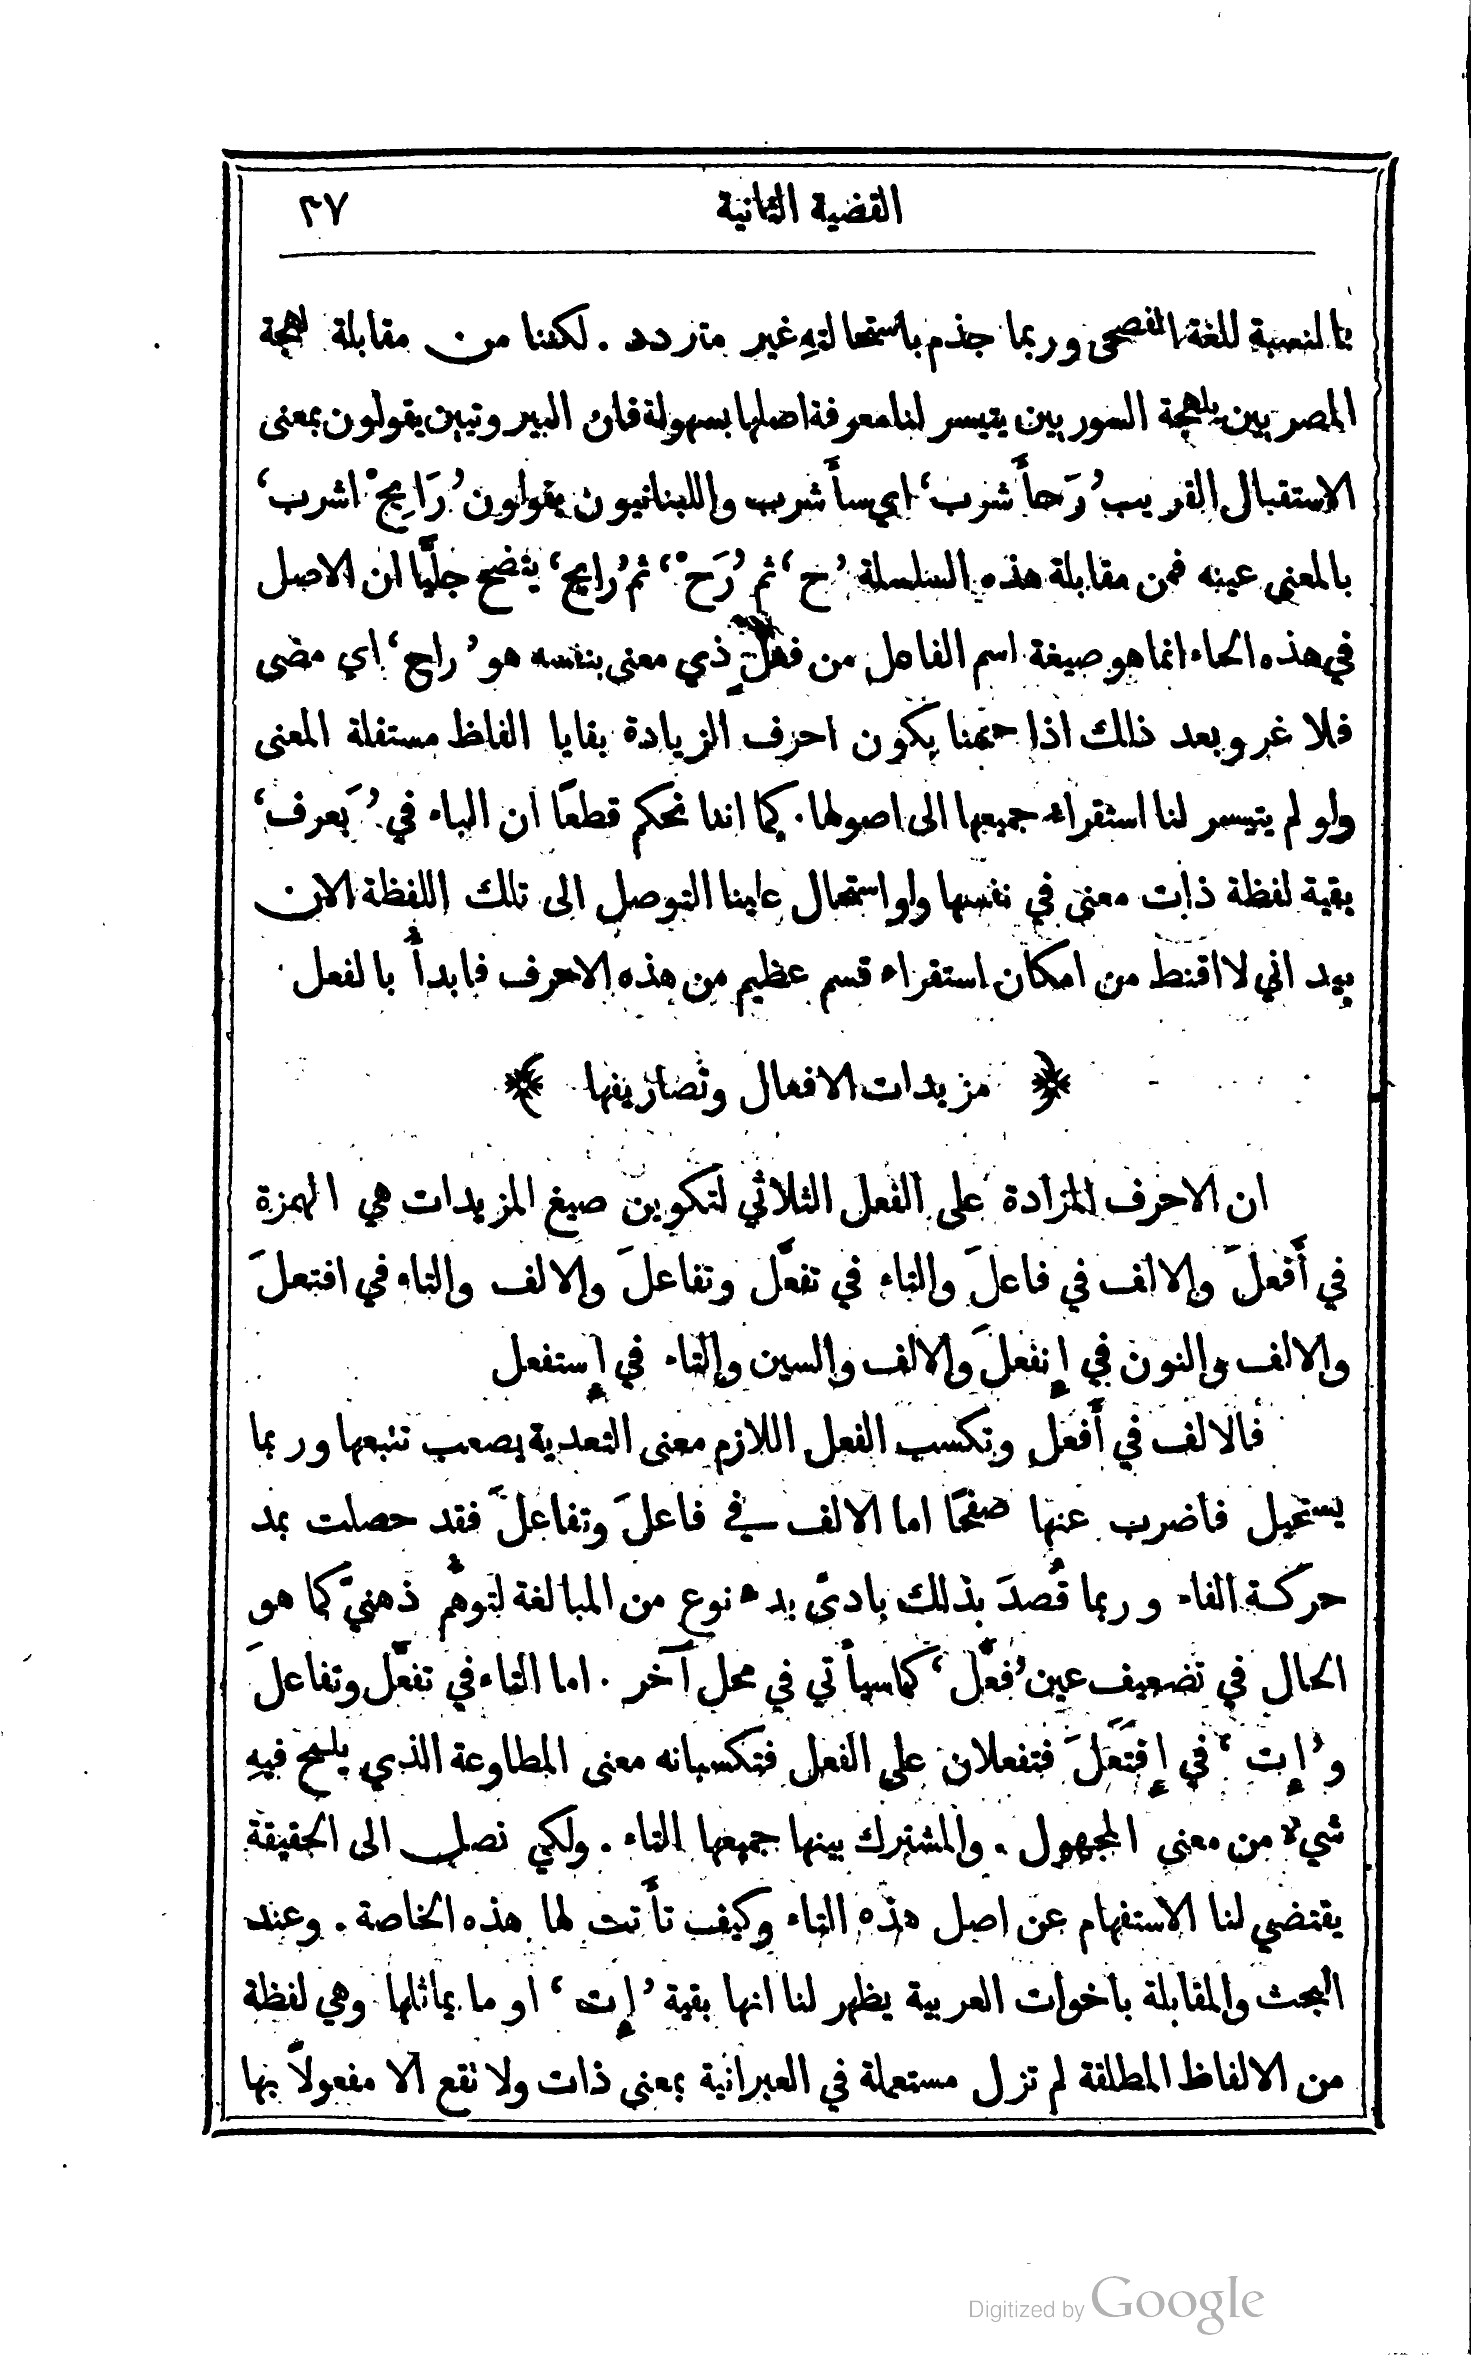 القضية الثانية ٣٧
بالنسبة للغة الفصحى وربما جذم باستحالتهِ غير متردد . لكننا من مقابلة لهجة
المصريين بلهجة السوريين يتيسر لنا معرفة اصلها بسهولة فان البيروتيين يقولون بمعنى
الاستقبال القريب ’رَحأَشرب‘ اي سأَشرب واللبنانيون يقولون ’رَايحْ اشرب‘
بالمعنى عينه فمن مقابلة هذه السلسلة ’ح‘ ثم ’رَحْ‘ ثم ’رايح‘ يتضح جليًّا ان الاصل
في هذه الحاء انما هو صيغة اسم الفاعل من فعلٍ ذي معنى بنفسه هو ’راح‘ اي مضى
فلا غرو بعد ذلك اذا حتمنا بكون احرف الزيادة بقايا الفاظ مستقلة المعنى
ولو لم يتيسر لنا استقراء جميعها الى اصولها . كما اننا نحكم قطعًا ان الباء في ’بَعرف‘
بقية لفظة ذات معنى في نفسها ولو استحال علينا التوصل الى تلك اللفظة الان
بيد اني لا اقنط من امكان استقراء قسم عظيم من هذه الاحرف فابدأُ بالفعل
﴿ مزيدات الافعال وتصاريفها ﴾
ان الاحرف المزادة على الفعل الثلاثي لتكوين صيغ المزيدات هي الهمزة
في أَفعلَ والالف في فاعلَ والتاء في تفعَّل وتفاعلَ والالف والتاء في افتعلَ
والالف والنون في إِنفعلَ والالف والسين والتاء في إِستفعل
فالالف في أَفعل وتكسب الفعل اللازم معنى التعدية يصعب تتبعها وربما
يستحيل فاضرب عنها صفحًا اما الالف في فاعلَ وتفاعلَ فقد حصلت بمد
حركة الفاء وربما قُصدَ بذلك بادئ بدء نوع من المبالغة لتوهُّم ذهنيّ كما هو
الحال في تضعيف عين ’فعَّل‘ كما سيأتي في محل آخر . اما التاء في تفعَّل وتفاعلَ
و’إِت‘ في إِفتَعَلَ فتفعلان على الفعل فتكسبانه معنى المطاوعة الذي يلمح فيهِ
شيء من معنى المجهول . والمشترك بينها جميعها التاء . ولكي نصل الى الحقيقة
يقتضي لنا الاستفهام عن اصل هذه التاء وكيف تأَتت لها هذه الخاصة . وعند
البحث والمقابلة باخوات العربية يظهر لنا انها بقية ’إِت‘ او ما يماثلها وهي لفظة
من الالفاظ المطلقة لم تزل مستعملة في العبرانية بمعنى ذات ولا تقع الا مفعولاً بها
Digitized by Google